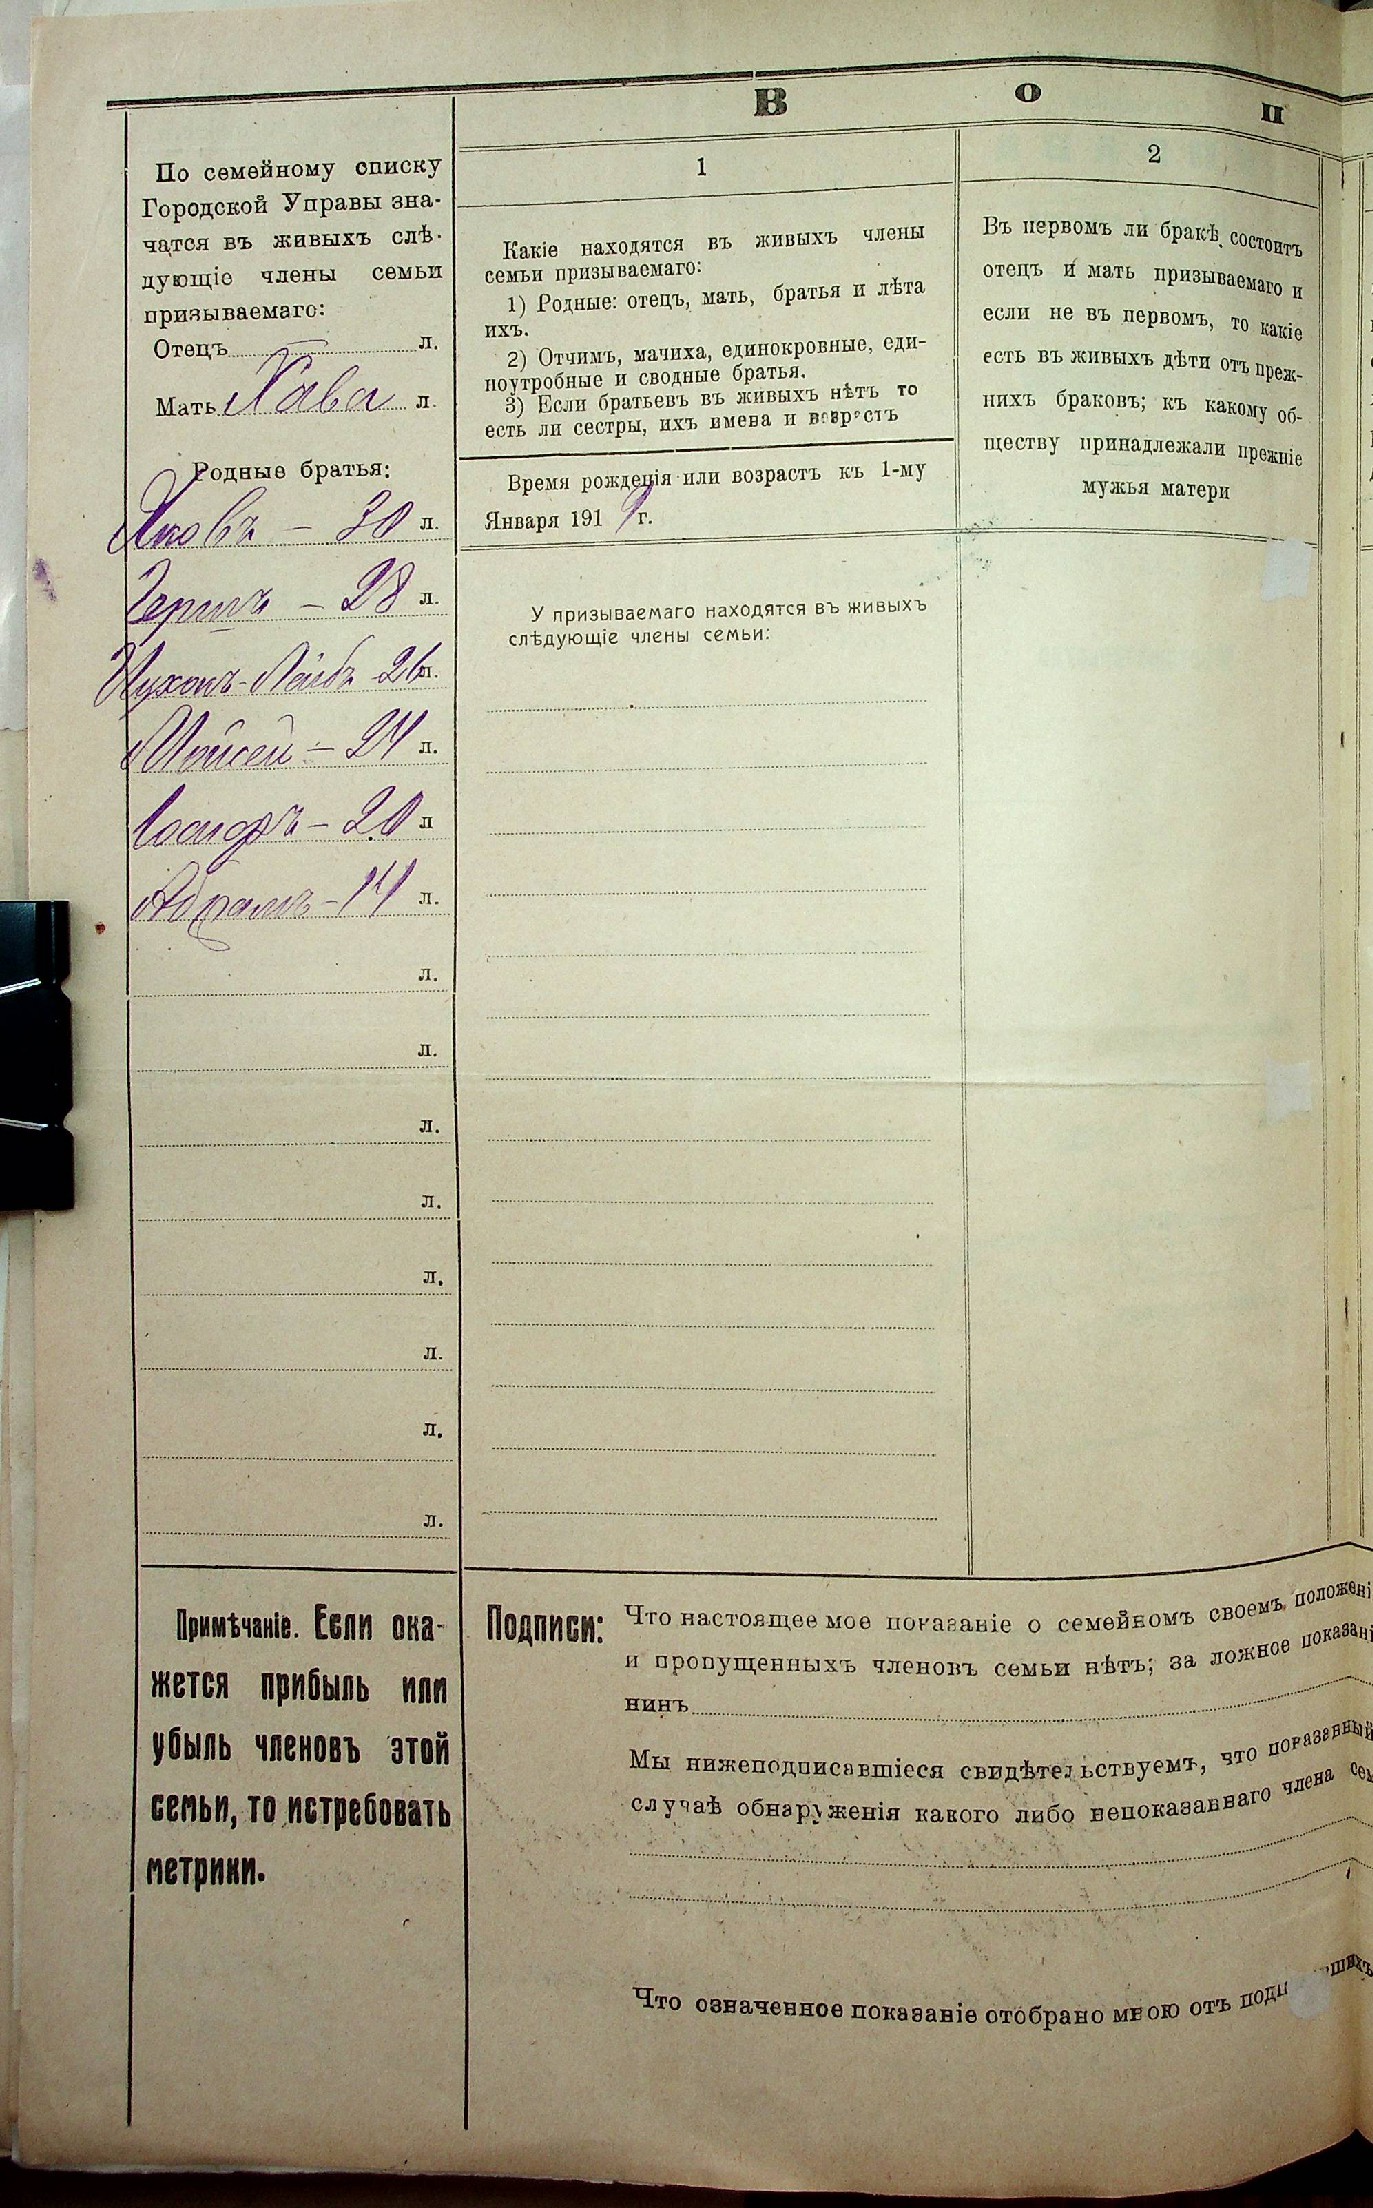 В о п
По семейному списку
Городской Управы зна-
чатся въ живыхъ слѣ-
дующіе члены семьи
призываемаго:
Отецъ — л.
Мать Хава л.
Родные братья:
Яковъ — 30 л.
Герцъ — 28 л.
Нухом-Лейбъ - 26 л.
Мойсей — 24 л.
Іосифъ — 20 л
Абрамъ — 14 л.
л.
л.
л.
л.
л.
л.
л.
л.
1
Какіе находятся въ живыхъ члены
семьи призываемаго:
1) Родные: отецъ, мать, братья и лѣта
ихъ.
2) Отчимъ, мачиха, единокровные, еди-
ноутробные и сводные братья.
3) Если братьевъ въ живыхъ нѣтъ то
есть ли сестры, ихъ имена и возрастъ
Время рожденія или возрастъ къ 1-му
Января 1919 г.
У призываемаго находятся въ живыхъ
слѣдующіе члены семьи:
2
Въ первомъ ли бракѣ состоитъ
отецъ и мать призываемаго и
если не въ первомъ, то какіе
есть въ живыхъ дѣти отъ преж-
нихъ браковъ; къ какому об-
ществу принадлежали прежніе
мужья матери
Примѣчаніе. Если ока-
жется прибыль или
убыль членовъ этой
семьи, то истребовать
метрики.
Подписи: Что настоящее мое показаніе о семейномъ своемъ положені
и пропущенныхъ членовъ семьи нѣтъ; за ложное показані
нинъ
Мы нижеподписавшіеся свидѣтельствуемъ, что показанный
случаѣ обнаруженія какого либо непоказаннаго члена сем
Что означенное показаніе отобрано мною отъ